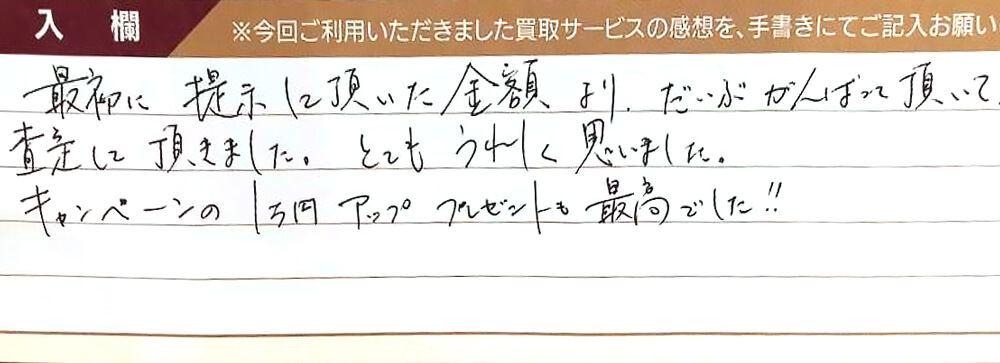 入 欄
※今回ご利用いただきました買取サービスの感想を、手書きにてご記入お願い
最初に 提示して頂いた金額より、だいぶがんばって頂いて
査定して頂きました。とてもうれしく思いました。
キャンペーンの1万円アッププレゼントも最高でした!!